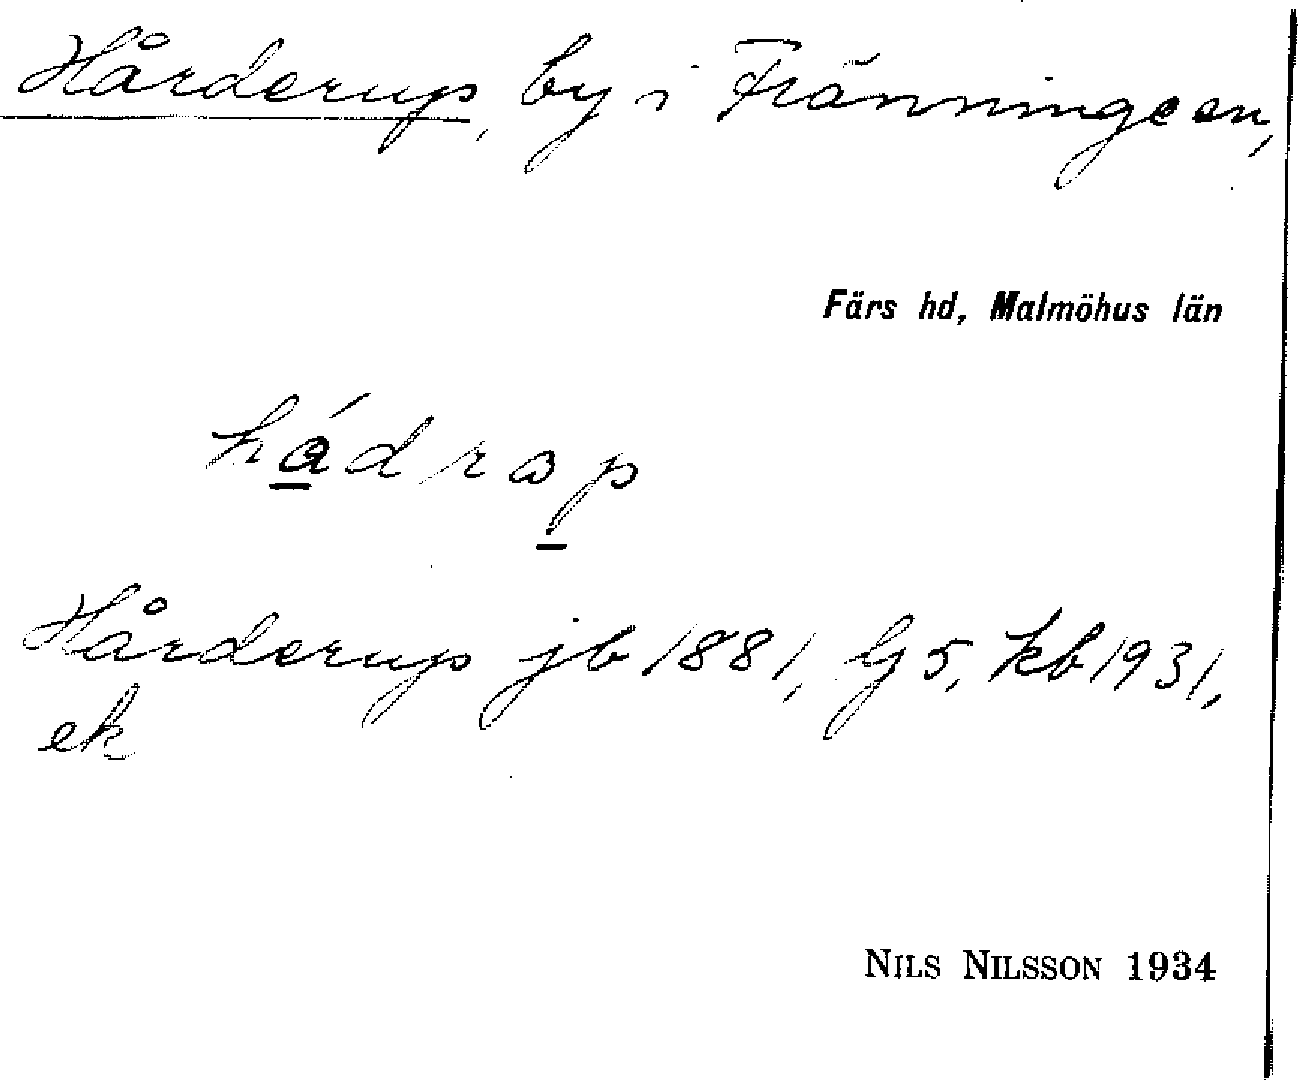 Hårderup, by i Fränninge sn,
Färs hd, Malmöhus län
hádrap
Hårderup jb 1881, G5, kb 1931,
ek
NILS NILSSON 1934